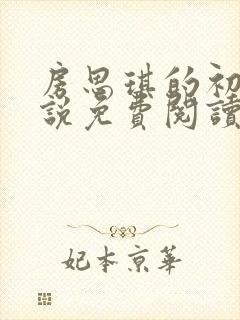 房思琪的初
說免費閱讀
妃本京華